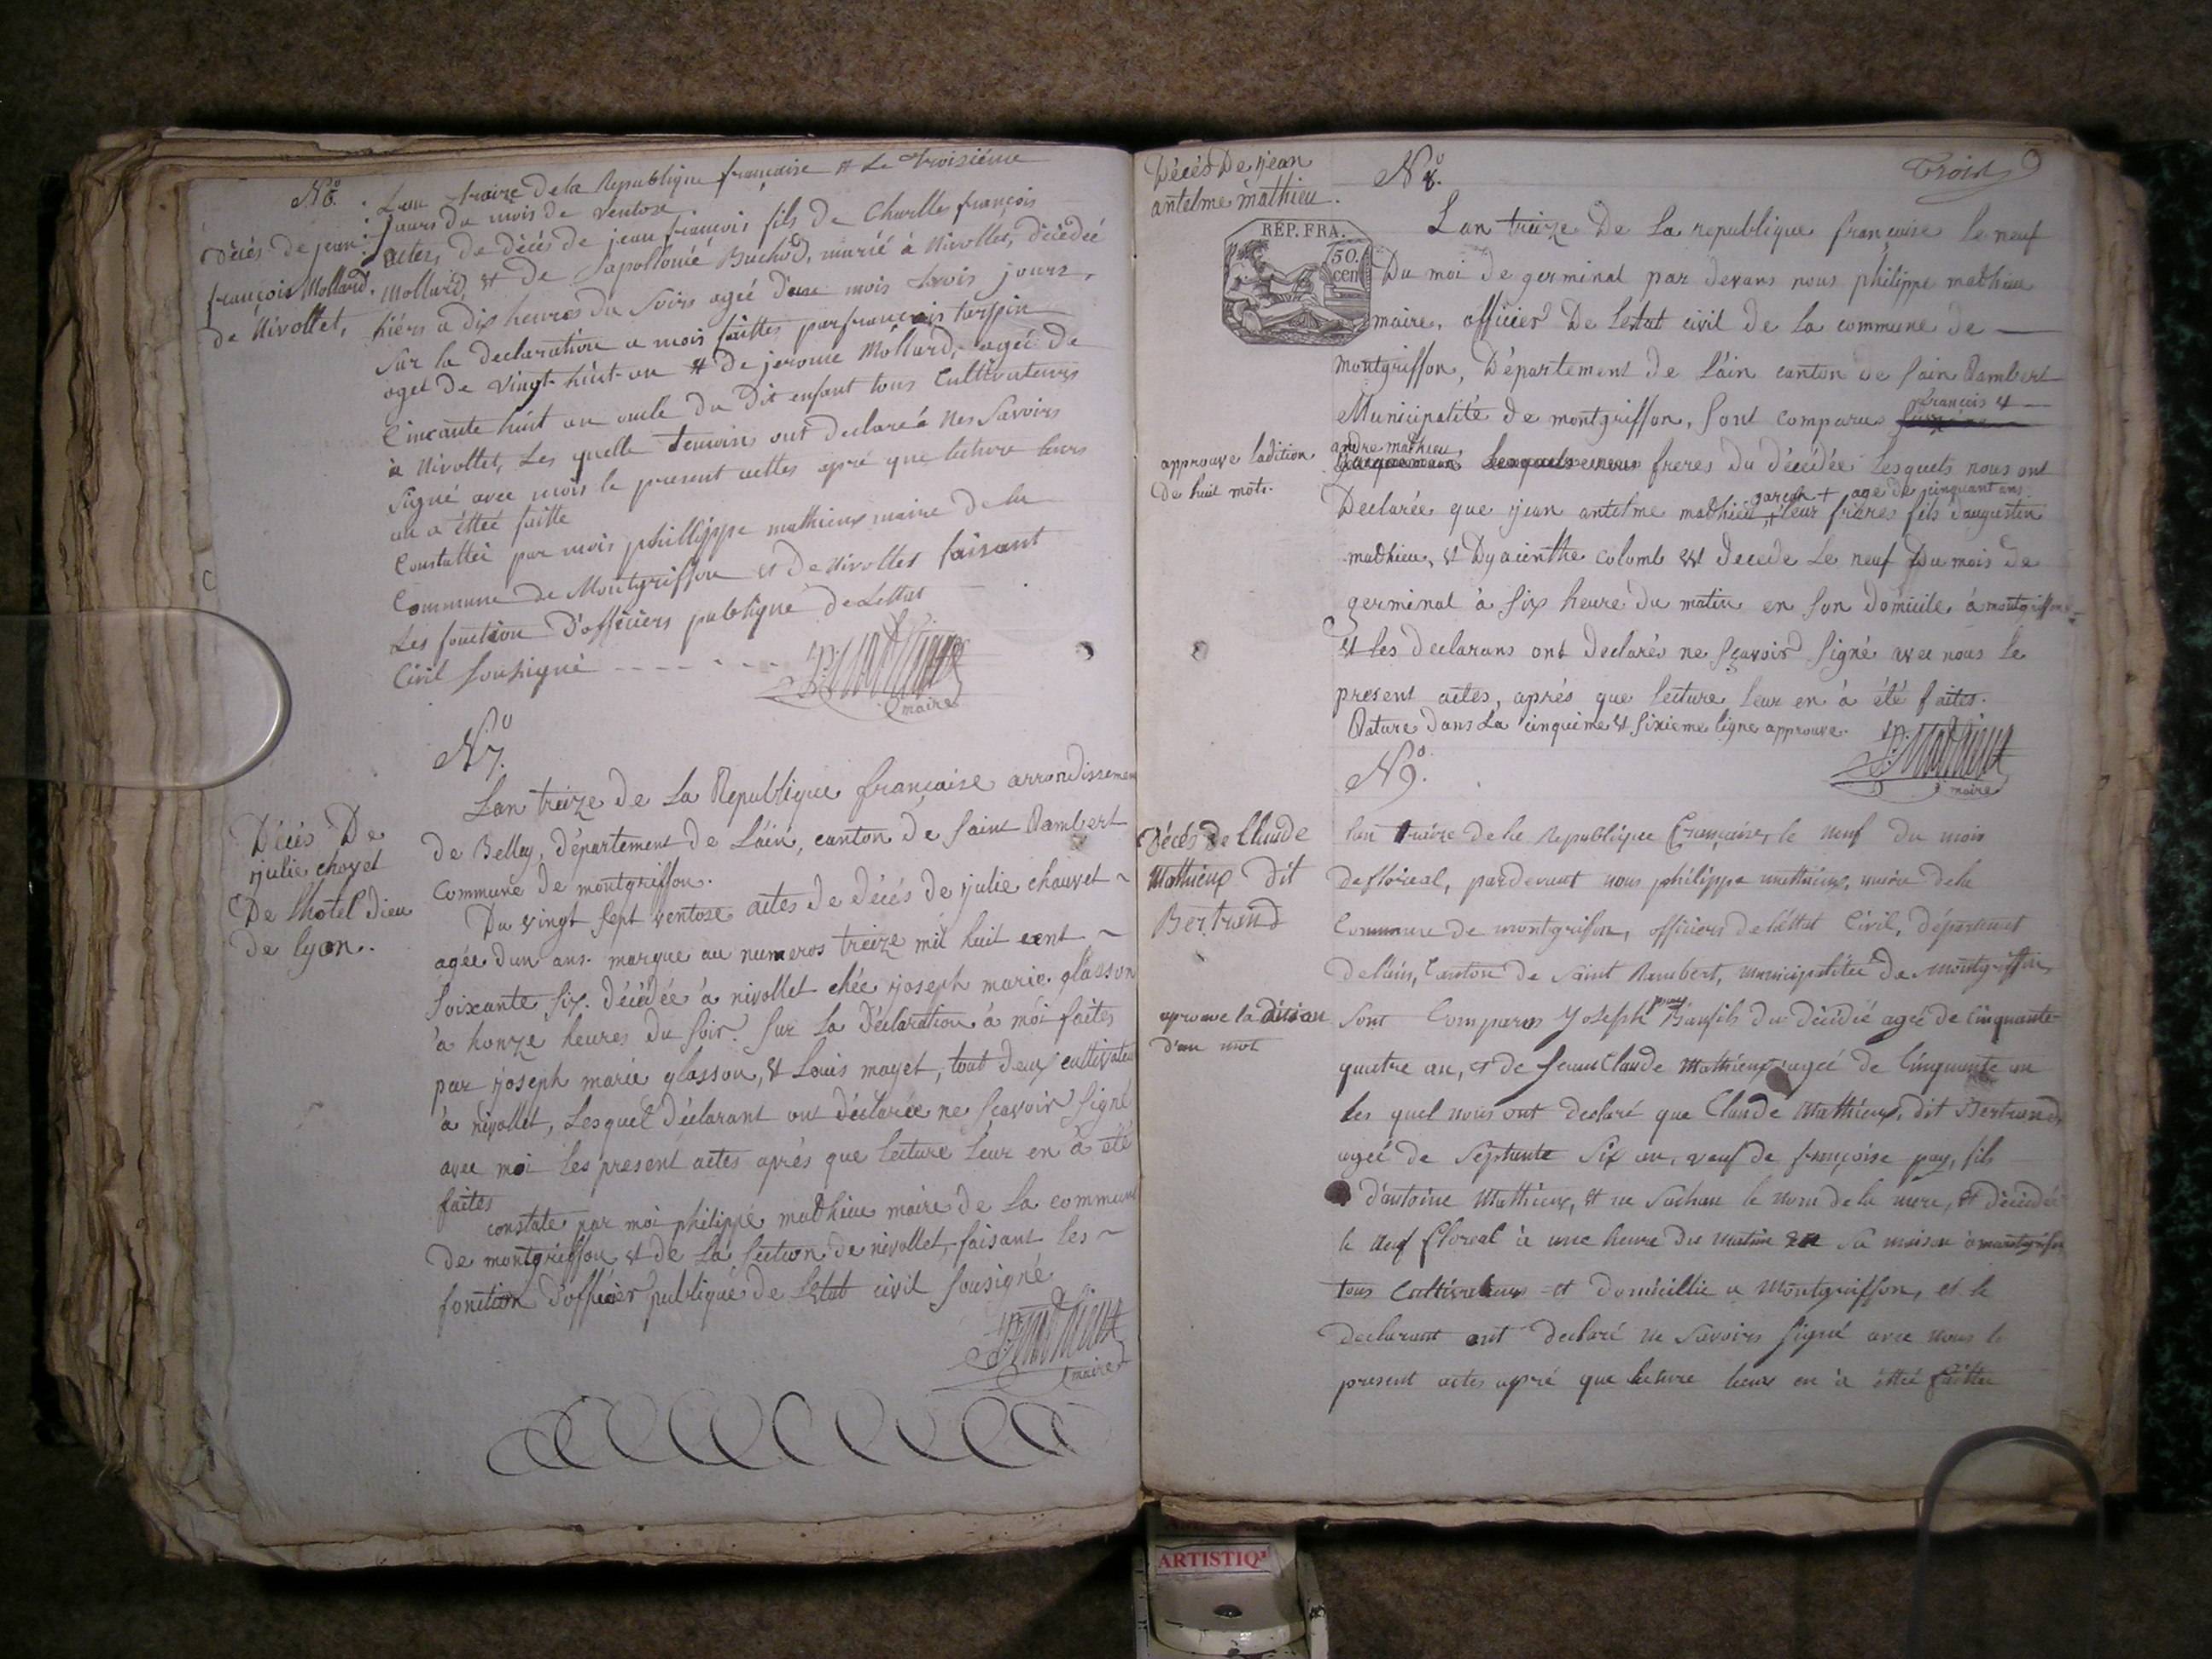 N° 6.
Décés de jean
françois Mollard.
de Nivollet,
L'an traize de la Republique française et Le troisiéme
jours du mois de ventose
actes de décés de jean françois fils de Charlles françois
Mollard, et de Buchod, marié à Nivollet, décédée
hiérs a dix heures du Soirs ageé dun mois trois jours,
Sur la declaration a mois faittes par francois turpin
aget de vingt huit an et de jerome Mollard, ageé de
Cincante huit an oncle du Dit enfant tous Cultivateurs
à Nivollet, Les quelle temoins ont declaré á nes Savoirs
Signé avec mois le present acttes apré que lecture leurs
an a éttée faitte
Constattée par mois phillippe mathieux maire de la
Commune de Montgriffon et de Nivollet faisant
Les fonction D'officiers publique de Lettat
Civil Sousigné
P. Mathieux
maire
N° 7.
Décés De
julie chovet
De lhotel dieu
de lyon.
Lan treize de La Republique française arrondissement
de Belley, département de L'áin, canton de saint Rambert
Commune de montgriffon.
Du vingt sept ventose actes de décés de julie chauvet ~
agée dun ans. marque au numeros treize mil huit cent ~
soixante six. décédée à nivollet chée joseph marie glasson
à honze heures du soir. Sur La Déclaration à moi faites
par joseph marie glasson, et Louis mayet, tout deux cultivateu
à nivollet, Lesquel déclarant ont déclarée ne sçavoir signé
avec moi les present actes aprés que lecture leur en à été
faites
constate par moi philippe mathieu maire de La commune
de montgriffon et de Là section de nivollet, faisant les ~
fonction d'officier publique de Létat civil sousigné
P. Mathieux
maire
Trois
Décés De jean
antelme mathieu.
RÉP. FRA.
50.
cen
N° 8.
Lan treize De La republique françoise le neuf
Du moi de germinal par devans nous philippe mathieu
maire, officier De Létat civil de La commune de
montgriffon, Département de L'áin canton de sain Rambert
Municipalité de montgriffon, sont comparus françois et
approuve ladition
De huit mots.
andre mathieu, freres du décédée Lesquels nous ont
garçon + age de cinquant ans.
Declarée que jean antelme mathieu, leur frères fils d'augustin
mathieu, et Dyacinthe colomb et decede Le neuf Du mois de
germinal à six heure du matin en son domicile à montgriffon
et les declarans ont Declarée ne sçavoir signé avec nous Le
present actes, aprés que lecture leur en à été faites.
Rature dans La cinquieme et sixieme ligne approuve.
P. Mathieux
maire
N° 9.
Décés de Claude
Mathieux dit
Bertrand
lan treize de la Republique Française, le neuf du mois
de floreal, pardevant nous philippe mathieux, maire de la
Commune de montgrifon, officiers de Léttat Civil, départment
de lain, Canton de Saint Rambert, municipalitée de Montgriffon
aprouve la dition
d'un mot
Sont Comparus Joseph Baufils du décédié ageé de Cinquante
quatre an, et de Jean Claude Mathieux ageé de Cinquante an
les quel nous ont declaré que Claude Mathieux, dit Bertrand,
ageé de Septante Six an, veuf de françoise pay, fils
d'antoine Mathieux, et ne Sachan le nom de la mere, et décédée
le neuf floreal à une heure du matin en Sa maison à montgrifon
tous Cultivateurs et domicillie a Montgriffon, et le
declarant ont declaré ne Savoirs Signé avec nous le
present actes apré que lecture leurs en à éttée faittes
ARTISTIQ